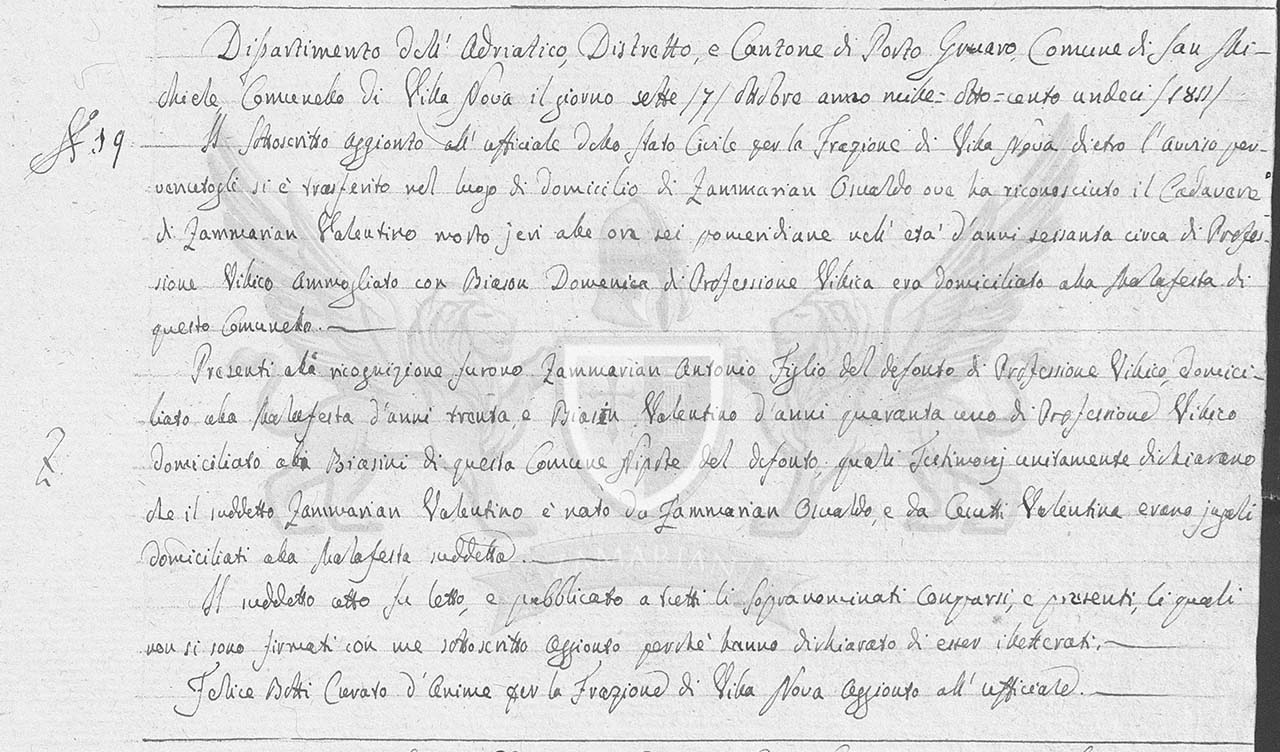 Dipartimento dell' Adriatico, Distretto, e Cantone di Porto Gruaro, Comune di San Mi-
chiele Comunello di Villa Nova il giorno sette /7/ ottobre anno mille= otto=cento undeci /1811/
N.º 19
Il sottoscritto aggionto all' ufficiale dello stato Civile per la Frazione di Villa Nova dietro l'avviso per-
venutogli si è trasferito nel luogo di domicilio di Zammarian Osualdo ove ha riconosciuto il Cadavere
di Zammarian Valentino morto jeri alle ore sei pomeridiane nell' età d'anni sessanta circa di Profes-
sione Villico ammogliato con Biason Domenica di Professione Villica era domiciliato alla Malafesta di
questo Comunello.
Presenti alla ricognizione furono Zammarian Antonio Figlio del defonto di Professione Villico, domici-
liato alla Malafesta d'anni trenta, e Biasin Valentino d'anni quaranta uno di Professione Villico
domiciliato alli Biasini di questa Comune Nipote del defonto, quali Testimonj unitamente dichiarano
che il suddetto Zammarian Valentino è nato da Zammarian Osualdo, e da Valentina erano jugali
domiciliati alla Malafesta suddetta.
Il suddetto atto fu letto, e pubblicato a tutti li sopranominati comparsi, e presenti, li quali
non si sono firmati con me sottoscritto aggionto perchè hanno dichiarato di esser illetterati.
Felice Botti Curato d'Anime per la Frazione di Villa Nova aggionto all' ufficiale.
MARIAN